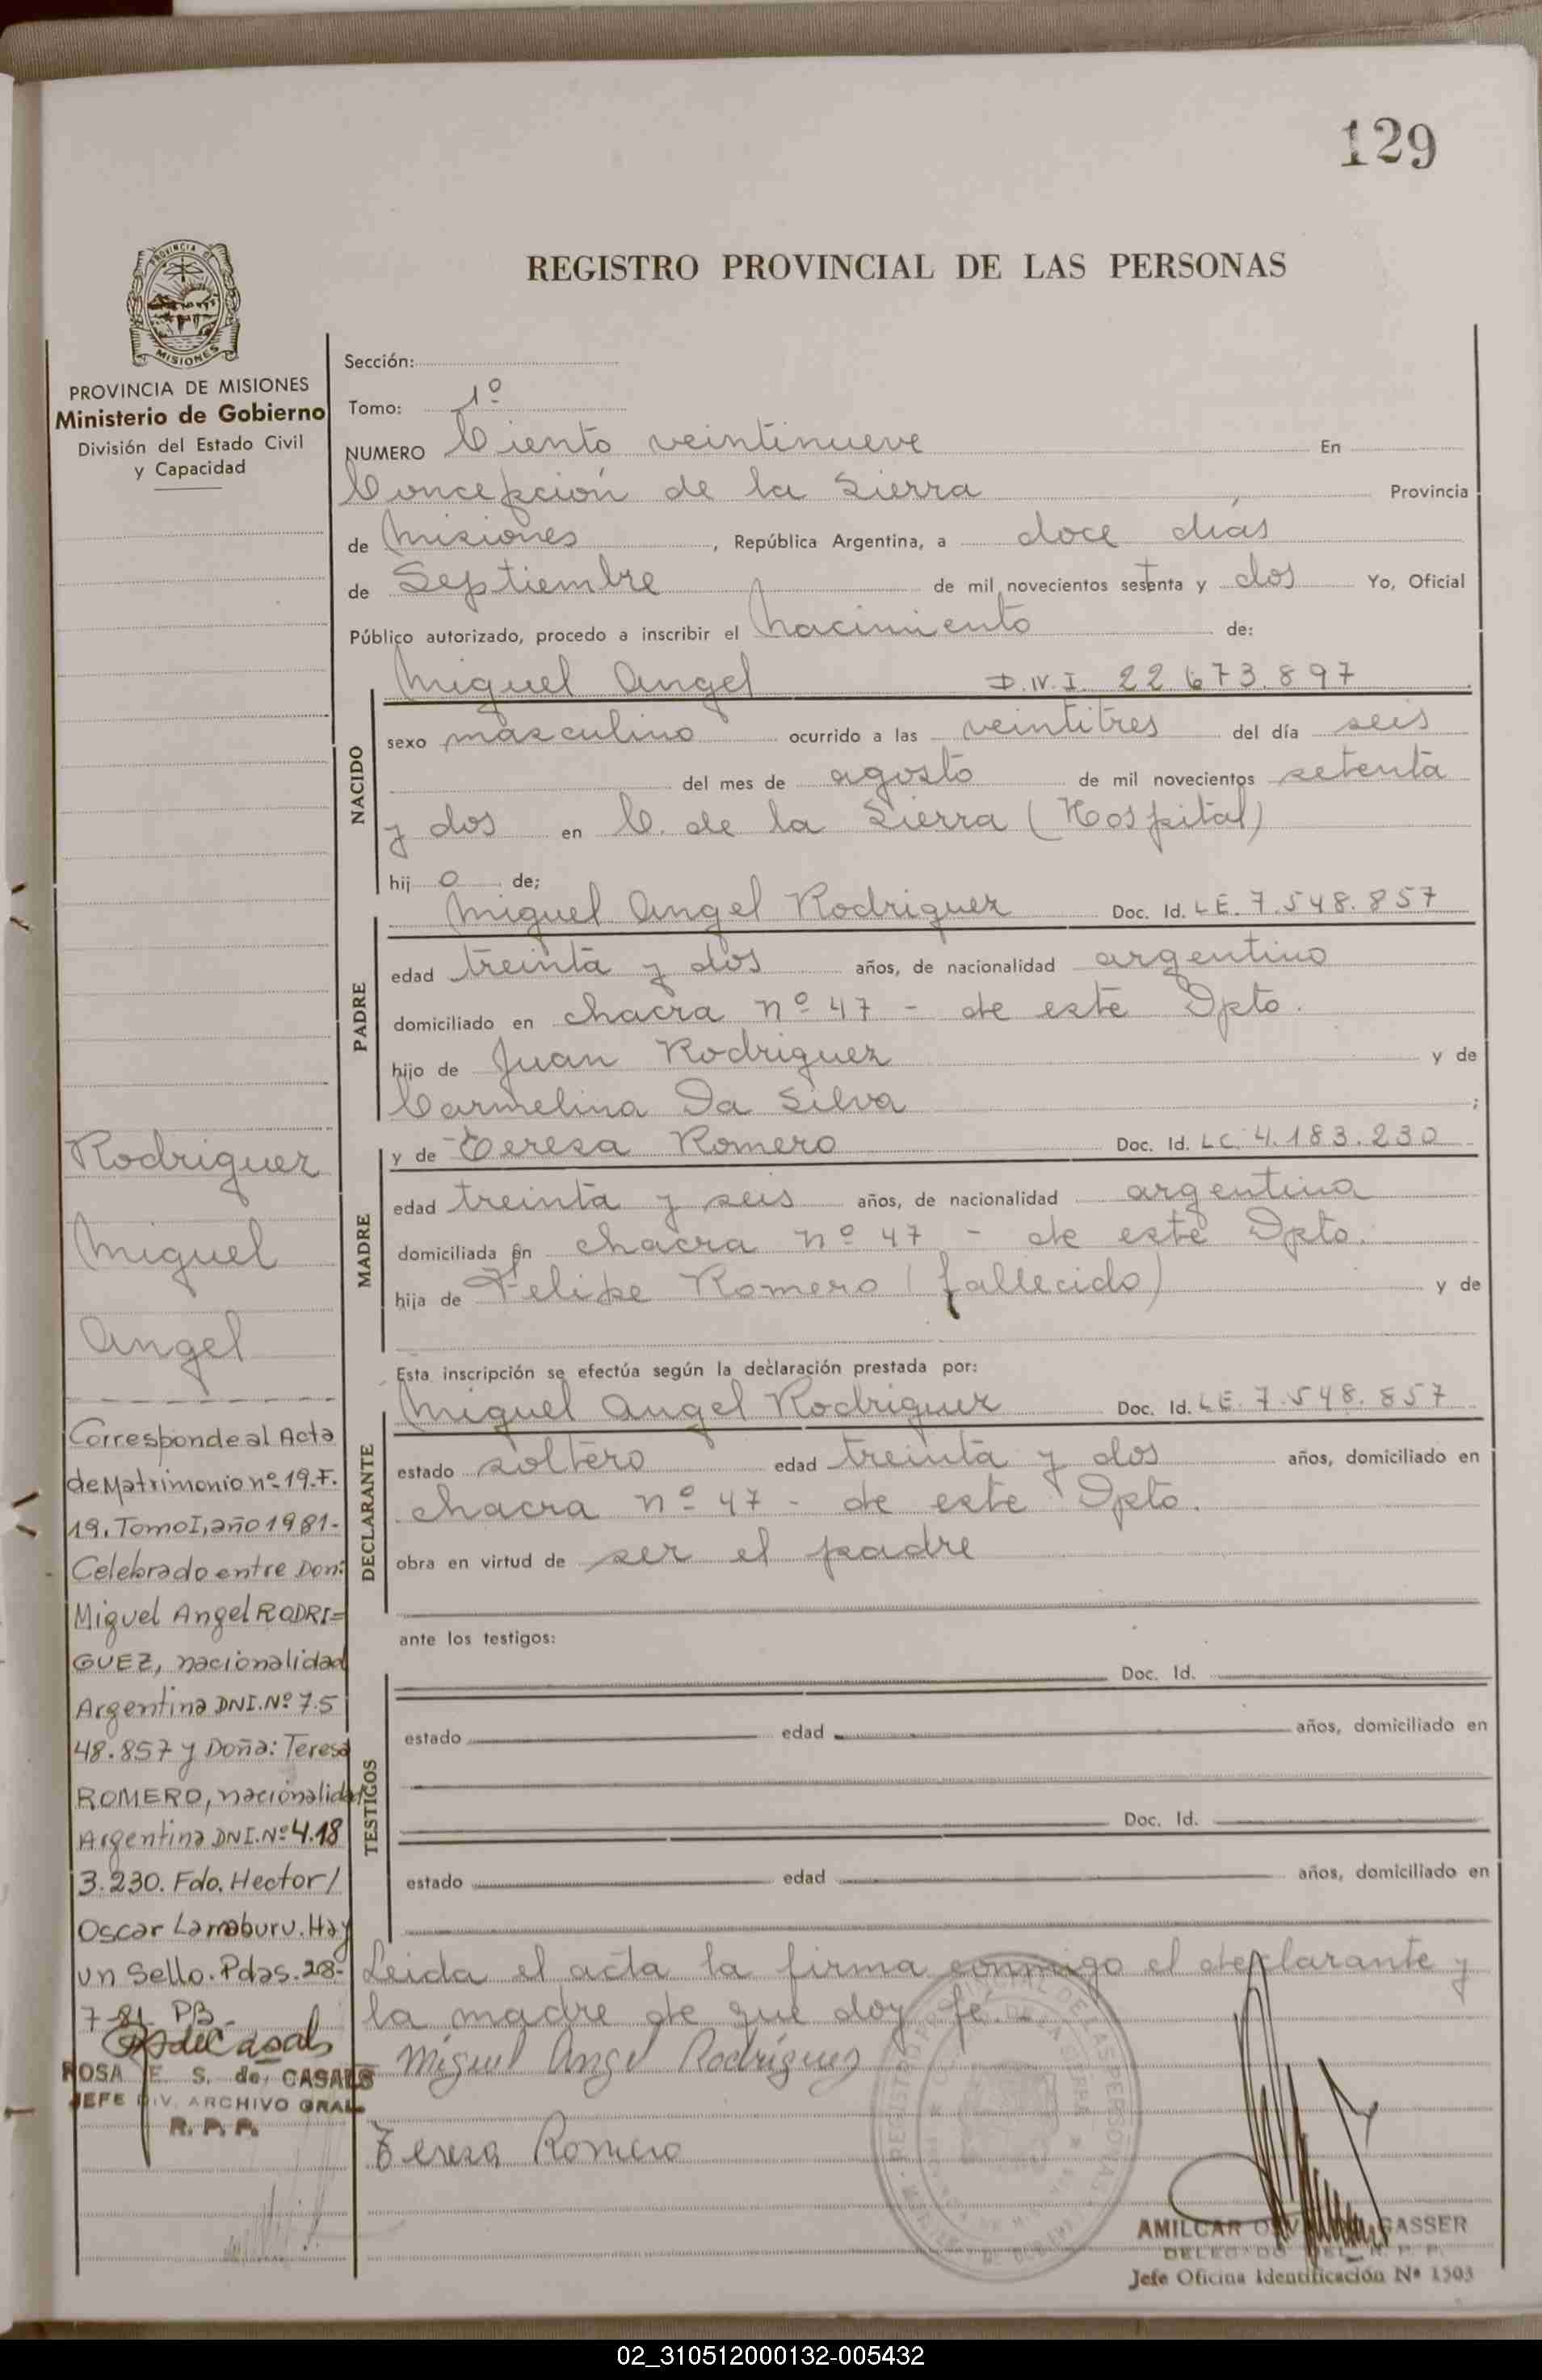 129
PROVINCIA DE
MISIONES
REGISTRO PROVINCIAL DE LAS PERSONAS
PROVINCIA DE MISIONES
Ministerio de Gobierno
División del Estado Civil
y Capacidad
Sección:
Tomo: 1º
NUMERO Ciento veintinueve En
Concepción de la Sierra Provincia
de Misiones, República Argentina, a doce días
de Septiembre de mil novecientos setenta y dos Yo, Oficial
Público autorizado, procedo a inscribir el nacimiento de:
NACIDO
Miguel Angel D.N.I. 22.673.897
sexo masculino ocurrido a las veintitres del día seis
del mes de agosto de mil novecientos setenta
y dos en C. de la Sierra (Hospital)
hij o de;
PADRE
Miguel Angel Rodriguez Doc. Id. L.E. 7.548.857
edad treinta y dos años, de nacionalidad argentino
domiciliado en chacra nº 47 - de este Dpto.
hijo de Juan Rodriguez y de
Carmelina Da Silva ;
MADRE
y de Teresa Romero Doc. Id. L.C. 4.183.230
edad treinta y seis años, de nacionalidad argentina
domiciliada en chacra nº 47 - de este Dpto.
hija de Felipe Romero (fallecido) y de
Esta inscripción se efectúa según la declaración prestada por:
DECLARANTE
Miguel Angel Rodriguez Doc. Id. L.E. 7.548.857
estado soltero edad treinta y dos años, domiciliado en
chacra nº 47 - de este Dpto.
obra en virtud de ser el padre
ante los testigos:
TESTIGOS
Doc. Id.
estado edad años, domiciliado en
Doc. Id.
estado edad años, domiciliado en
Leida el acta la firma conmigo el declarante y
la madre de que doy fé.
Miguel Angel Rodrigues
Teresa Romero
AMILCAR GASSER
DELEGADO DEL R. P. P.
Jefe Oficina Identificación Nº 1503
Rodriguez
Miguel
Angel
Corresponde al Acta
de Matrimonio nº 19-F.
19. Tomo I, año 1981-
Celebrado entre Don:
Miguel Angel RODRI=
GUEZ, nacionalidad
Argentina DNI. Nº 7.5
48.857 y Doña: Teresa
ROMERO, nacionalidad
Argentina DNI. Nº 4.18
3.230. Fdo. Hector/
Oscar Larraburu. Hay
un Sello. Pdas. 28-
7-81 PB-
ROSA E. S. de CASALS
JEFE DIV. ARCHIVO GRAL
R. P. P.
02_310512000132-005432